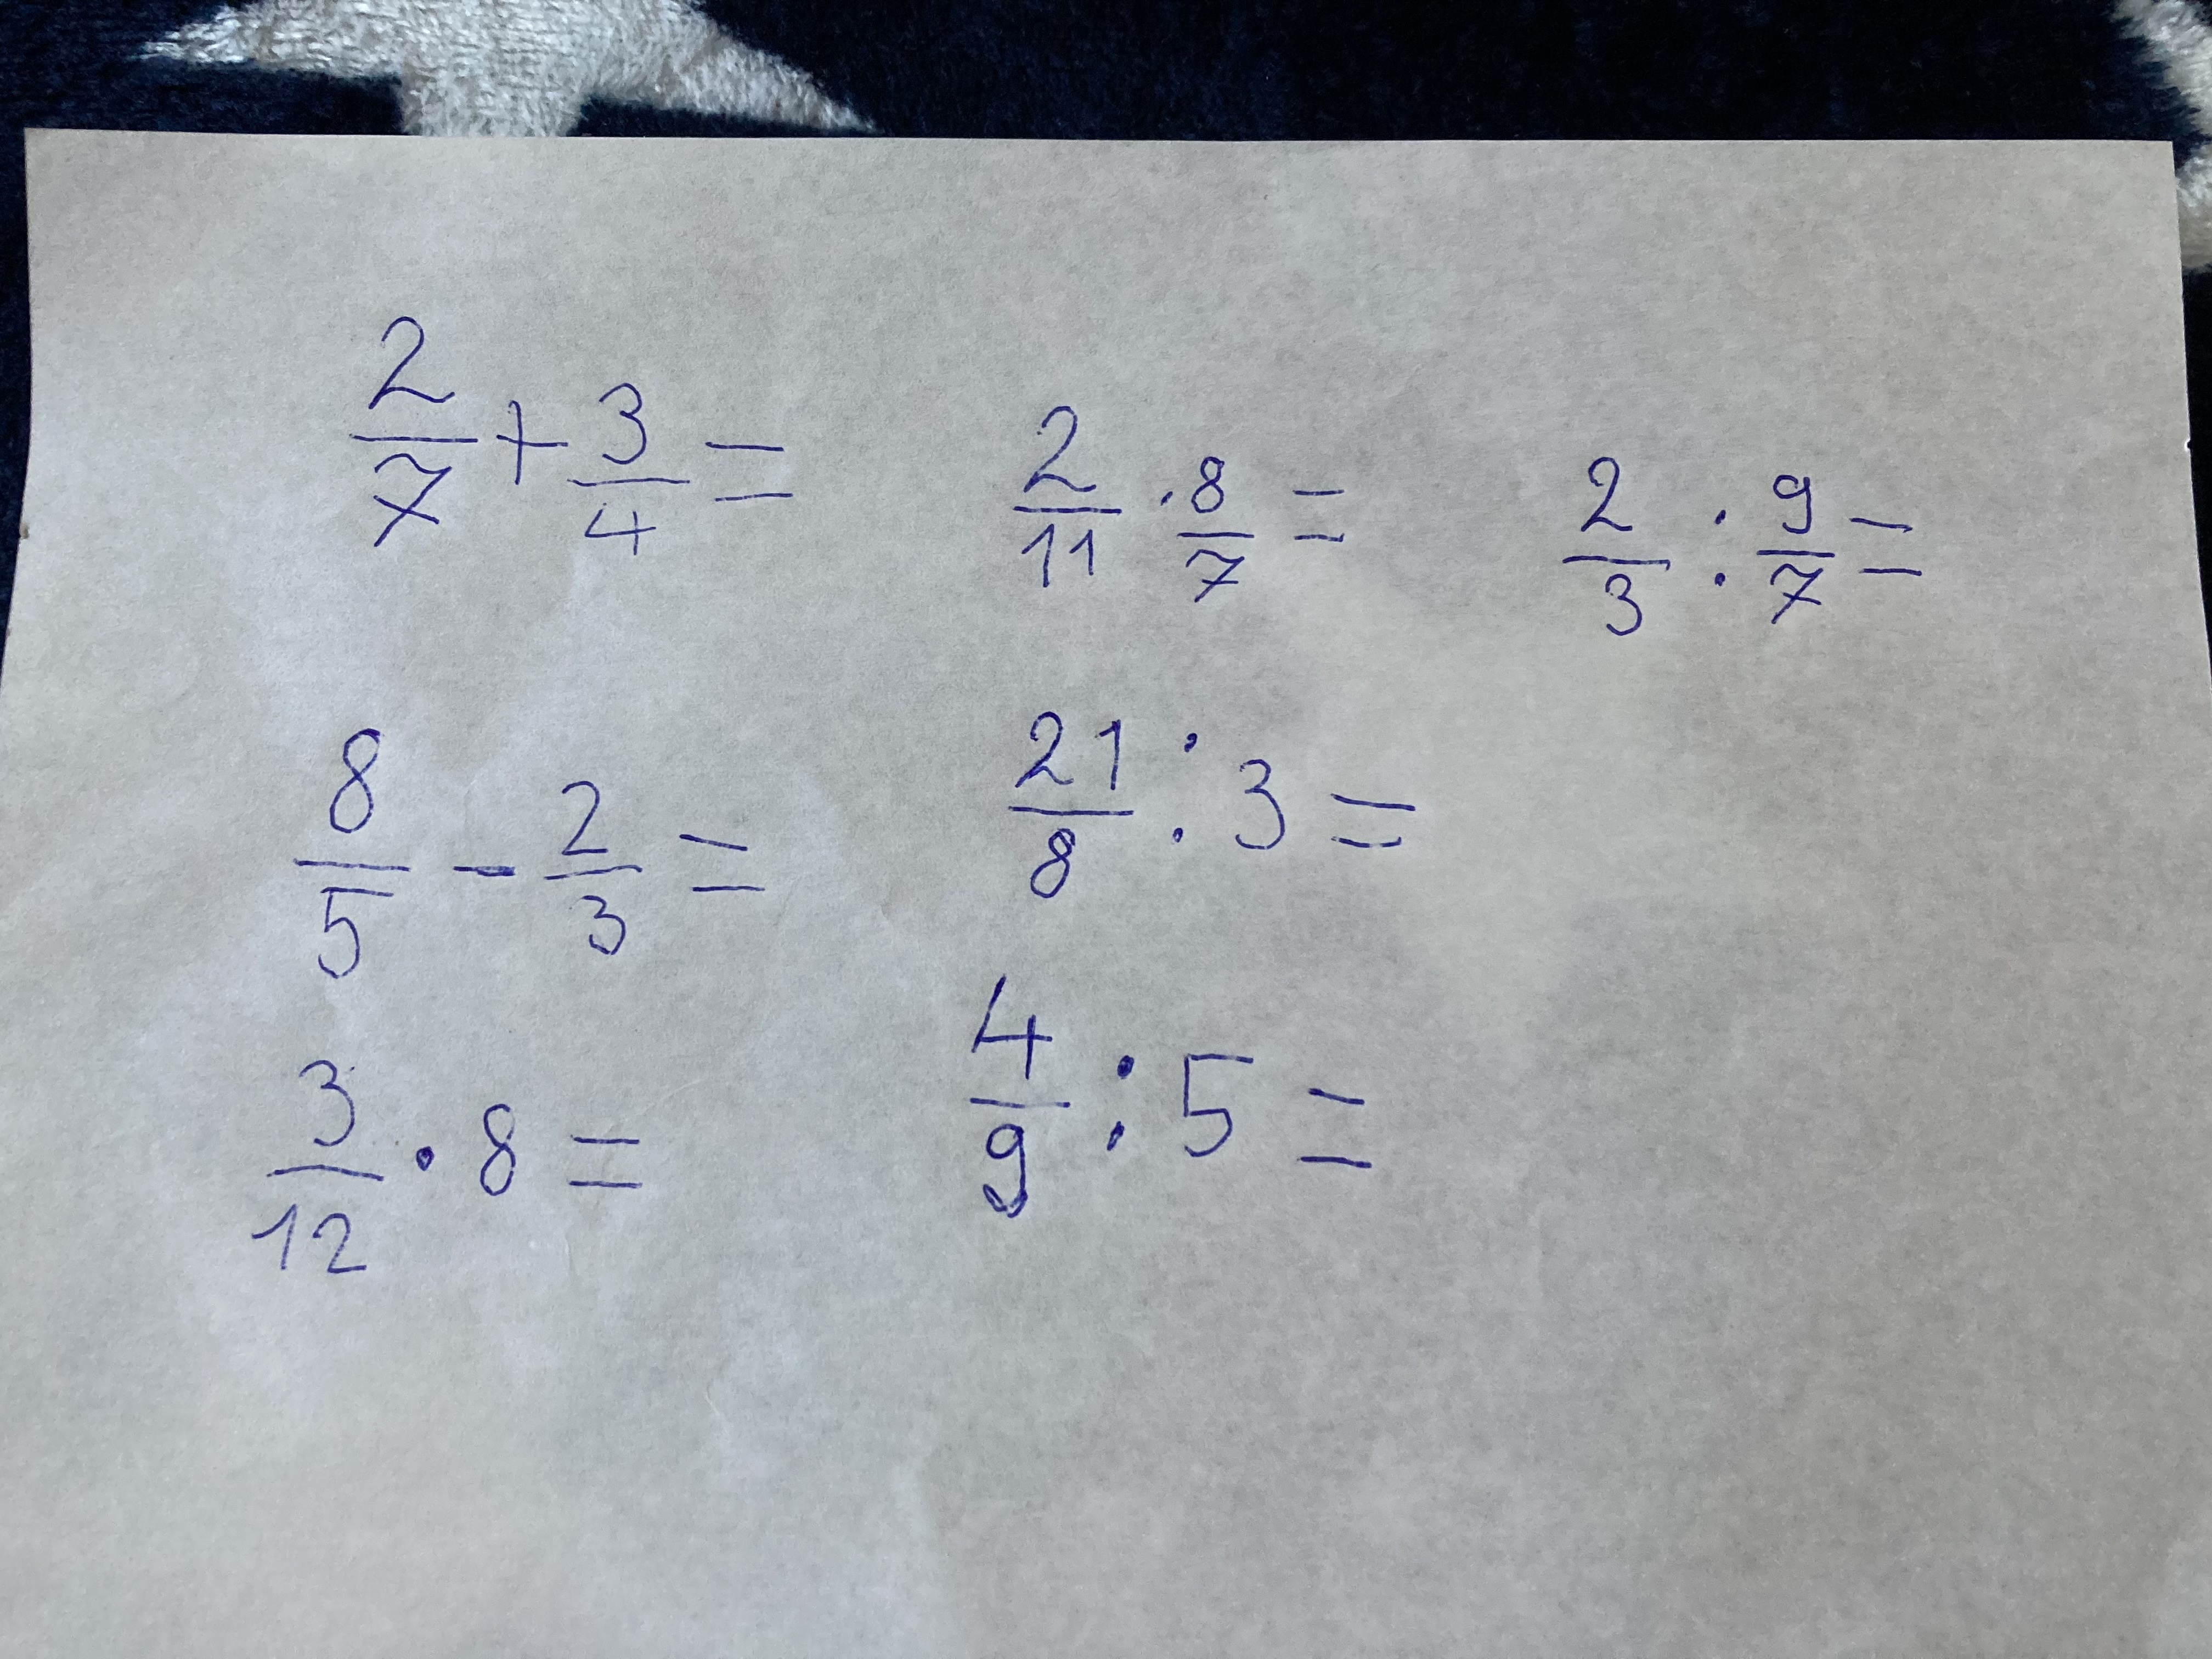 2/7 + 3/4 =
2/11 · 8/7 =
2/3 : 9/7 =
8/5 - 2/3 =
21/8 : 3 =
3/12 · 8 =
4/9 : 5 =